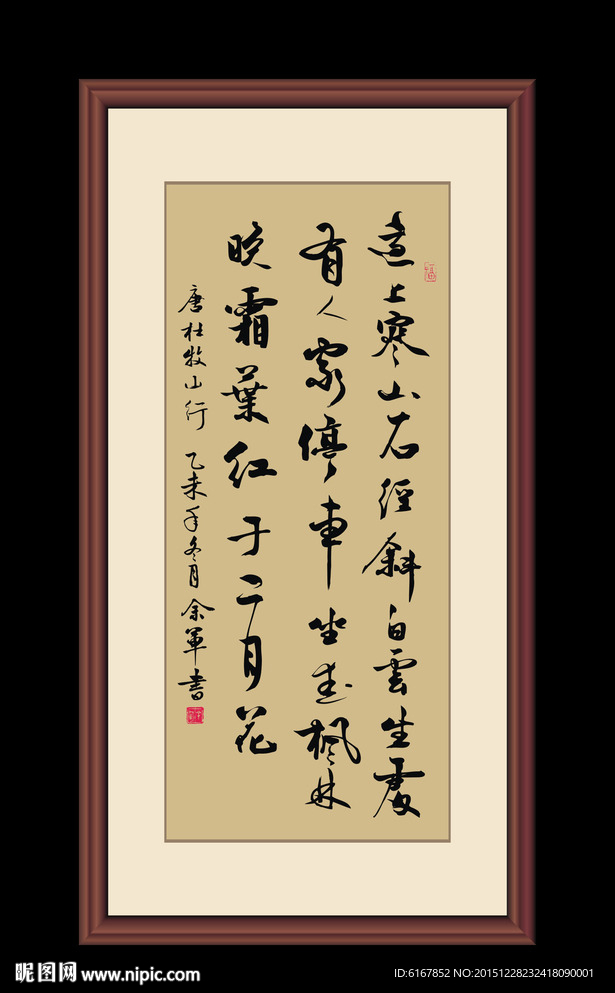 遠上寒山石徑斜白雲生處
有人家停車坐愛楓林
晚霜葉紅于二月花
唐杜牧山行 乙未年冬月余軍書
昵图网 www.nipic.com
ID:6167852 NO:20151228232418090001